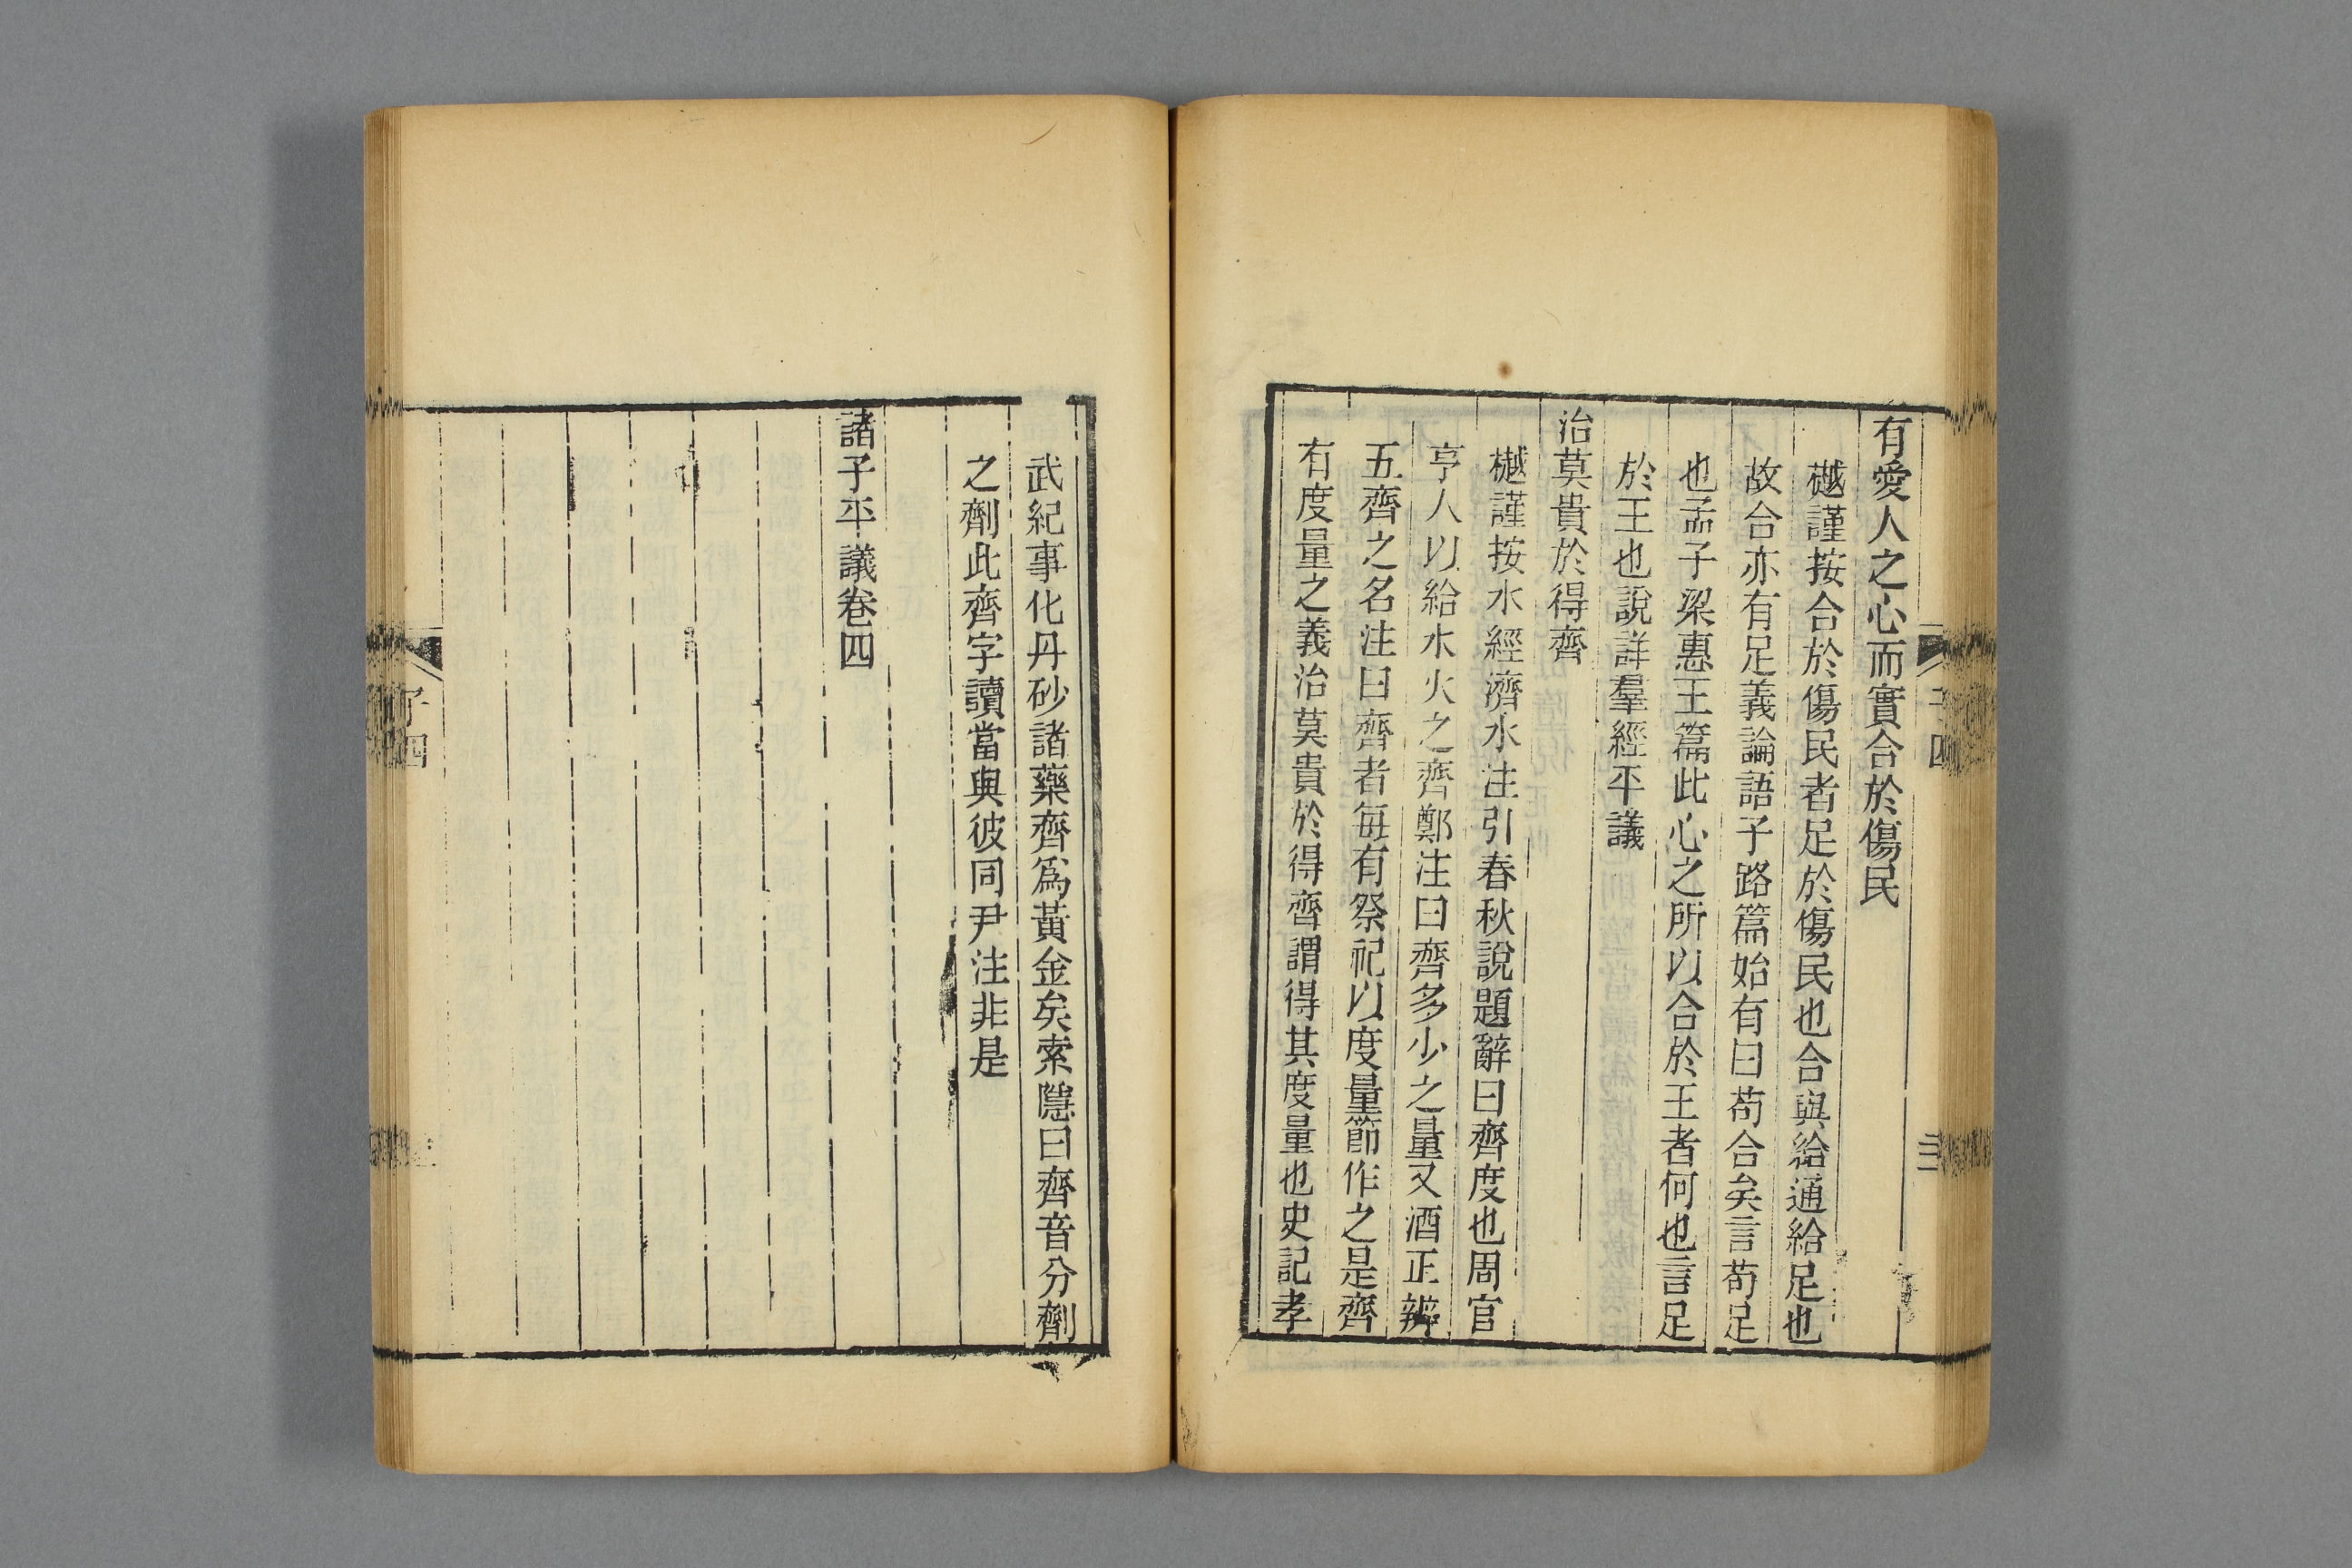 有愛人之心而實合於傷民
樾謹按合於傷民者足於傷民也合與給通給足也
故合亦有足義論語子路篇始有曰苟合矣言苟足
也孟子梁惠王篇此心之所以合於王者何也言足
於王也說詳羣經平議
治莫貴於得齊
樾謹按水經濟水注引春秋說題辭曰齊度也周官
亨人以給水火之齊鄭注曰齊多少之量又酒正辨
五齊之名注曰齊者每有祭祀以度量節作之是齊
有度量之義治莫貴於得齊謂得其度量也史記孝
武紀事化丹砂諸藥齊爲黃金矣索隱曰齊音分劑
之劑此齊字讀當與彼同尹注非是
諸子平議卷四
子四